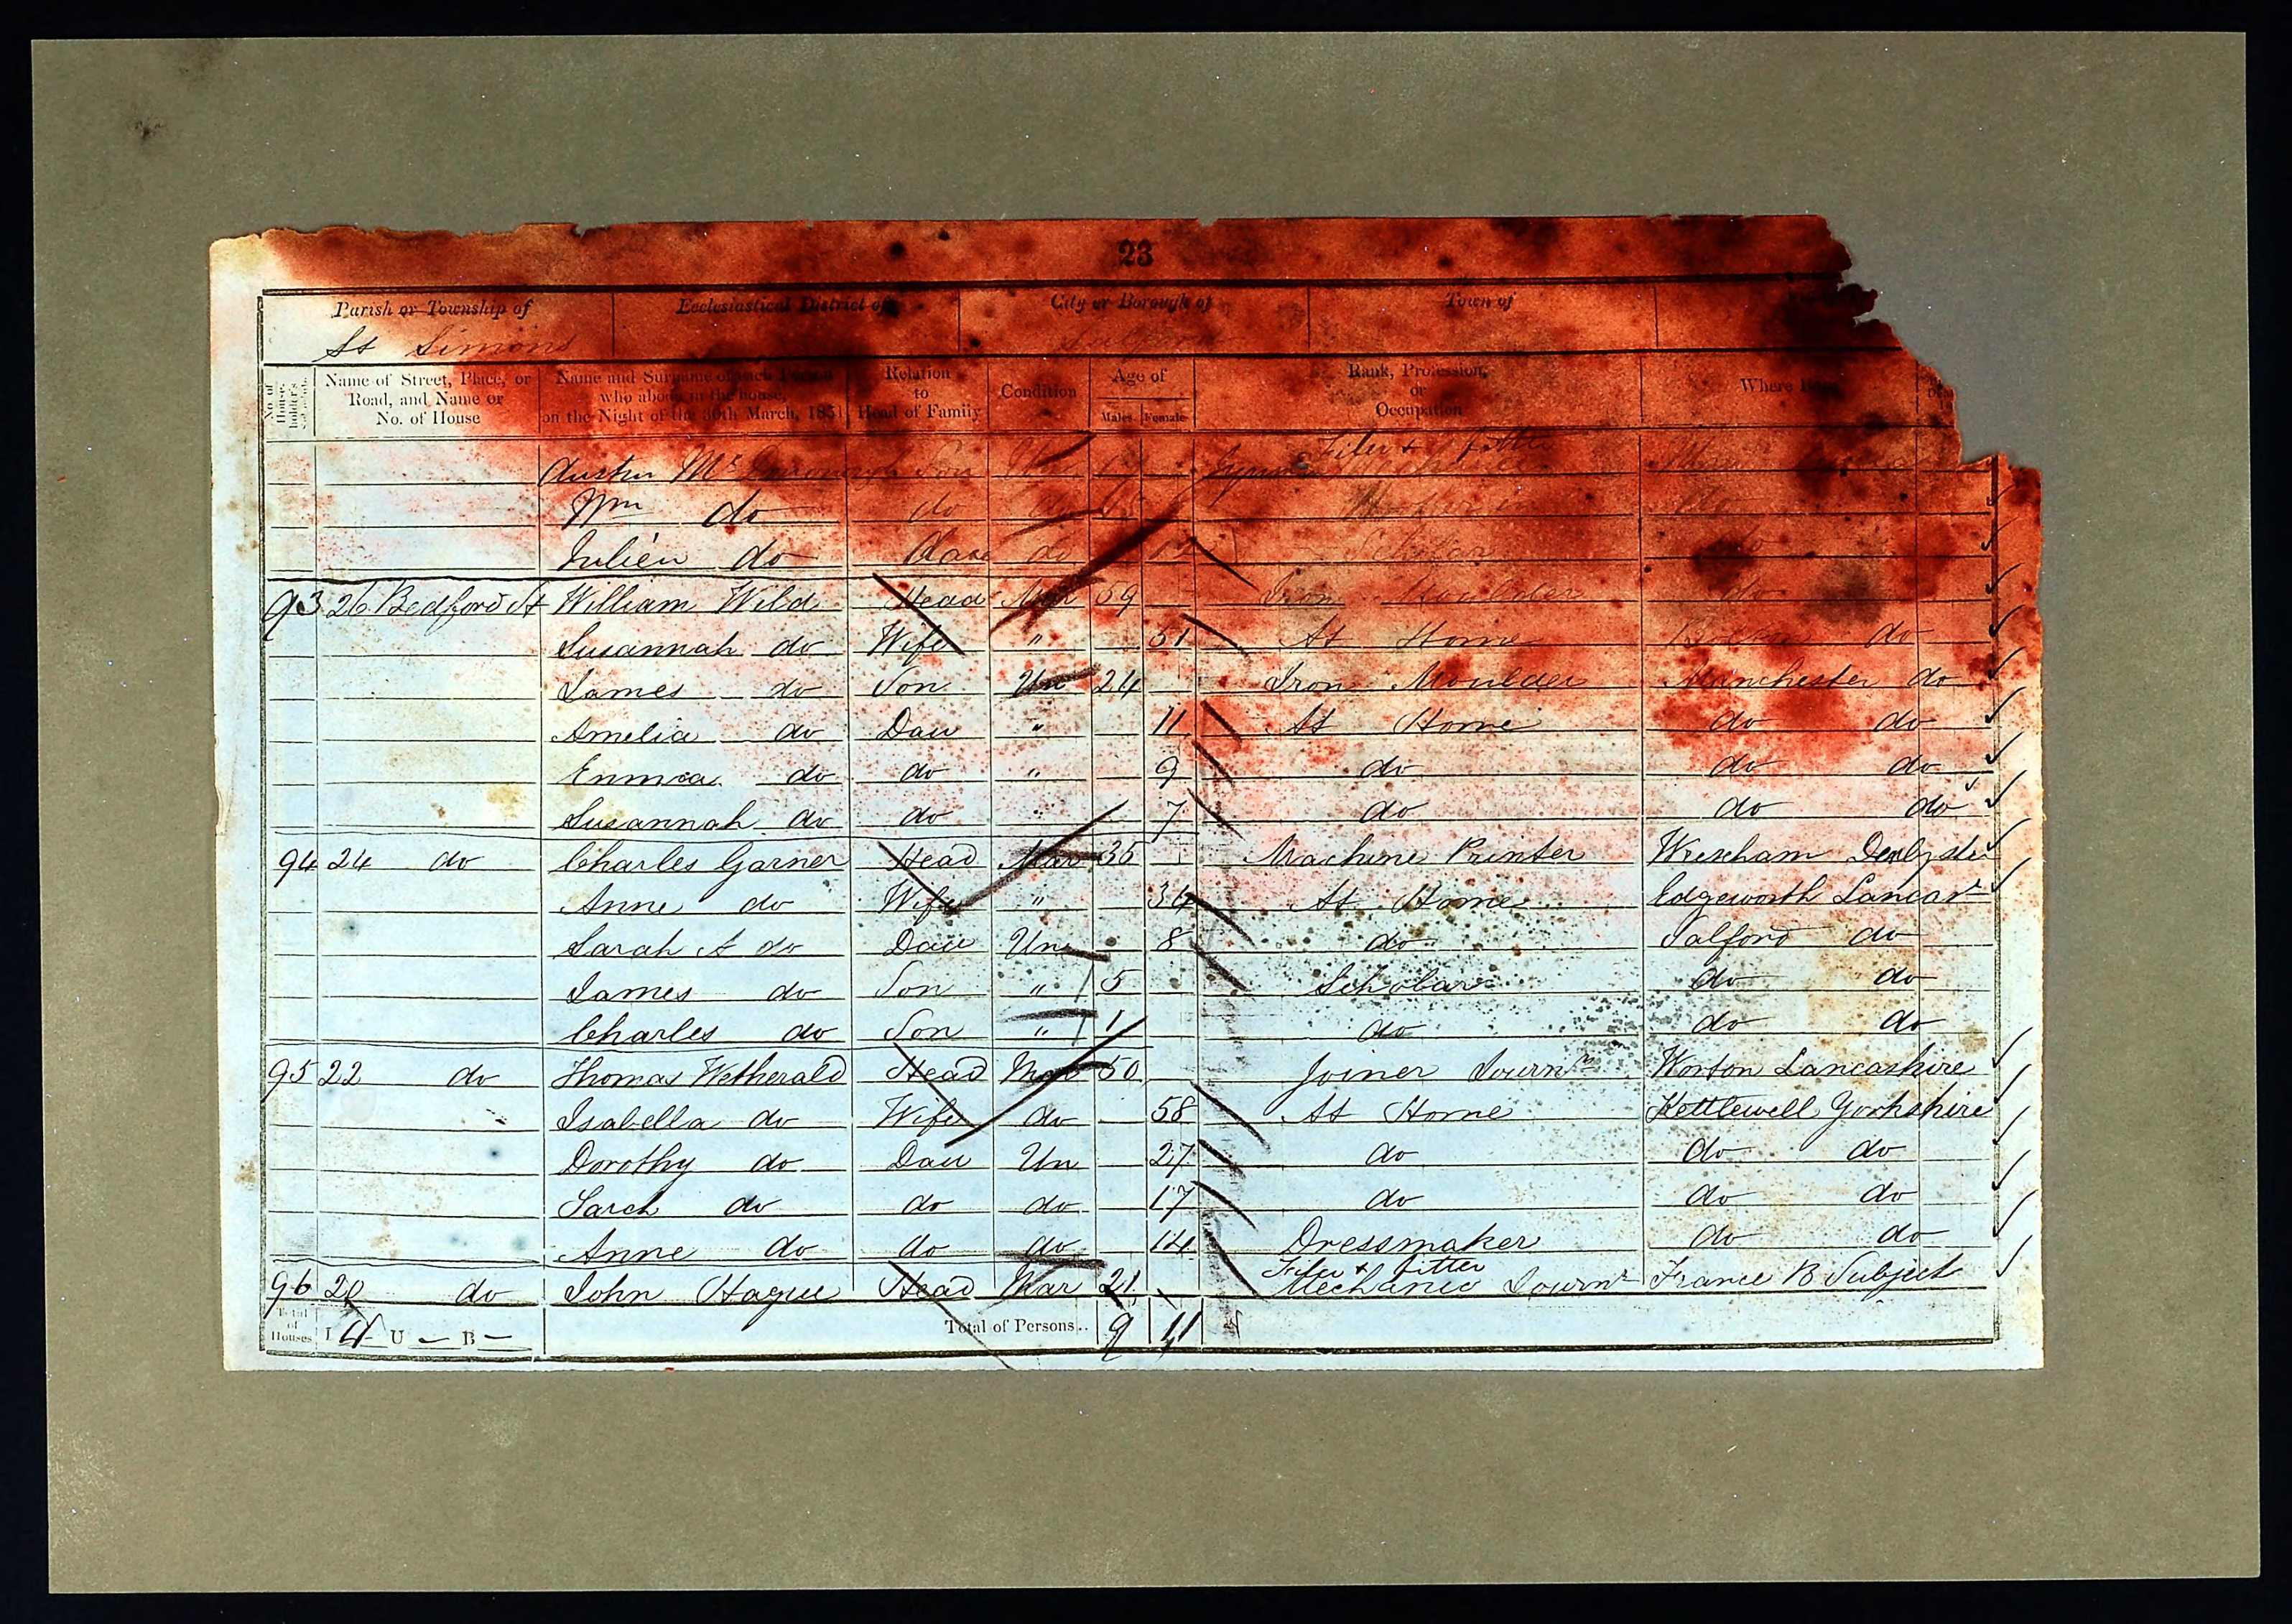 23
Parish or Township of Ecclesiastical District of City or Borough of Town of
St Simons
No. of House-holder's Name of Street, Place, or Road, and Name or No. of House Name and Surname of each Person who abode in the house, on the Night of the 30th March, 1851 Relation to Head of Family Condition Age of Males Females Rank, Profession, or Occupation Where Born
Filer & Fitter
Austin Mc Son Un
Wm do do do
Julien do do 12 Scholar do
93 26 Bedford St William Wild Head Mar 54 Iron Moulder do
Susannah do Wife " 51 At Home Bolton do
James do Son Un 24 Iron Moulder Manchester do
Amelia do Dau " 11 At Home do do
Emma do do " 9 do do do
Susannah do do " 7 do do do
94 24 do Charles Garner Head Mar 35 Machine Printer Wrexham
Anne do Wife " 34 At Home Edgeworth Lancasr
Sarah A do Dau Un 8 do Salford do
James do Son " 5 Scholar do do
Charles do Son " 1 do do do
95 22 do Thomas Wetherald Head Mar 50 Joiner Journm Worton Lancashire
Isabella do Wife do 58 At Home Kettlewell Yorkshire
Dorothy do Dau Un 27 do do do
Sarah do do do 17 do do do
Anne do do do 14 Dressmaker do do
Filer & Fitter
96 20 do John Hague Head Mar 21 Mechanic Journr France B Subject
Total of Houses I 4 U – B – Total of Persons.. 9 11